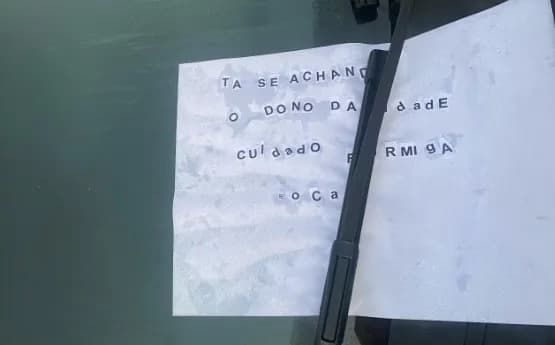 TA SE ACHAND
O DONO DA dadE
CUIdadO RMIgA